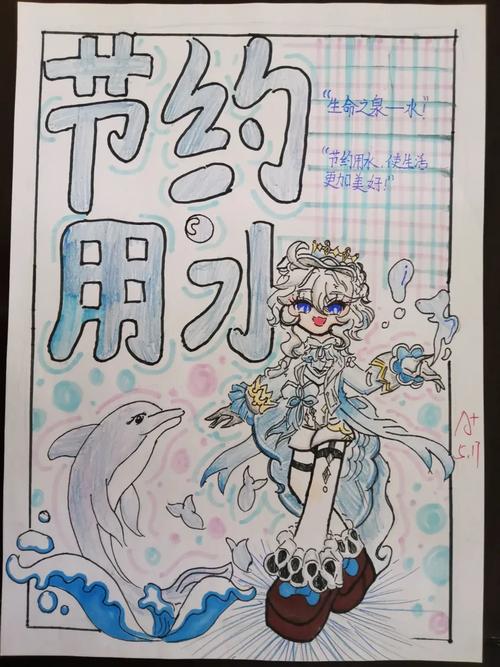 节约
用水
"生命之泉—水!"
"节约用水,使生活
更加美好!"
A+
5.17